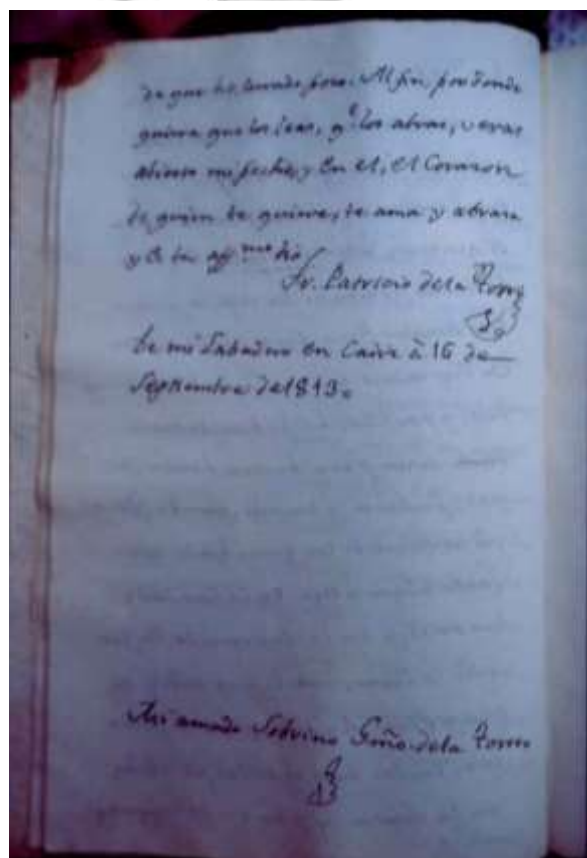 de que he tomado poso. Al fin por donde
quiera que los leas, q.e los abras, veras
abierto mi pecho, y en el, el Corazon
de quien te quiere, te ama y abraza
y es tu aff.mo tio
Fr. Patricio dela Torre
De mi en à 16 de
Septiembre de 1813.
Mi amado Sobrino dela Torre